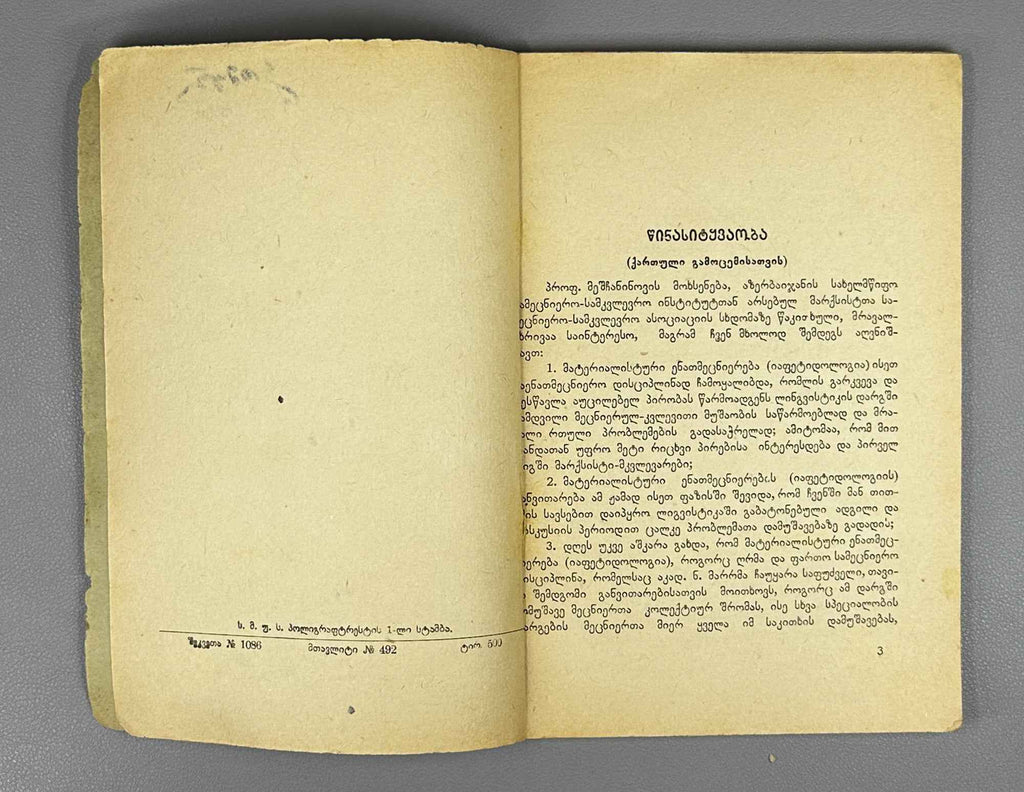 ს. მ. უ. ს. პოლიგრაფტრესტის 1-ლი სტამბა.
შეკვეთა № 1086 მთავლიტი № 492 ტირ. 500
წინასიტყვაობა
(ქართული გამოცემისათვის)
პროფ. მეშჩანინოვის მოხსენება, აზერბაიჯანის სახელმწიფო
ამეცნიერო-სამკვლევრო ინსტიტუტთან არსებულ მარქსისტთა სა-
ეცნიერო-სამკვლევრო ასოციაციის სხდომაზე წაკითხული, მრავალ-
ხრივაა საინტერესო, მაგრამ ჩვენ მხოლოდ შემდეგს აღვნიშ-
ავთ:
1. მატერიალისტური ენათმეცნიერება (იაფეტიდოლოგია) ისეთ
აენათმეცნიერო დისციპლინად ჩამოყალიბდა, რომლის გარკვევა და
ესწავლა აუცილებელ პირობას წარმოადგენს ლინგვისტიკის დარგში
ამდვილი მეცნიერულ-კვლევითი მუშაობის საწარმოებლად და მრა-
ალი რთული პრობლემების გადასაჭრელად; ამიტომაა, რომ მით
ანდათან უფრო მეტი რიცხვი პირებისა ინტერესდება და პირველ
იგში მარქსისტი-მკვლევარები;
2. მატერიალისტური ენათმეცნიერების (იაფეტიდოლოგიის)
ანვითარება ამ ჟამად ისეთ ფაზისში შევიდა, რომ ჩვენში მან თით-
ის სავსებით დაიპყრო ლიგვისტიკაში გაბატონებული ადგილი და
ისკუსიის პერიოდით ცალკე პრობლემათა დამუშავებაზე გადადის;
3. დღეს უკვე აშკარა გახდა, რომ მატერიალისტური ენათმეც-
იერება (იაფეტიდოლოგია), როგორც ღრმა და ფართო სამეცნიერო
ისციპლინა, რომელსაც აკად. ნ. მარრმა ჩაუყარა საფუძველი, თავი-
შემდგომი განვითარებისათვის მოითხოვს, როგორც ამ დარგში
ომუშავე მეცნიერთა კოლექტიურ შრომას, ისე სხვა სპეციალობის
არგების მეცნიერთა მიერ ყველა იმ საკითხის დამუშავებას,
3